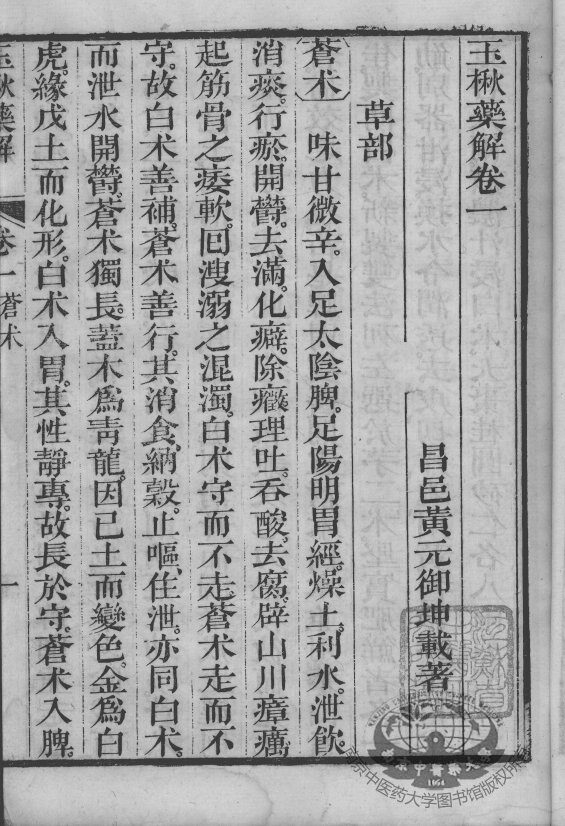 玉楸藥解卷一
昌邑黃元御坤載著
草部
蒼术
味甘微辛。入足太陰脾。足陽明胃經。燥土。利水。泄飲。
消痰。行瘀。開鬱。去滿。化癖。除癥。理吐。吞酸。去腐。辟山川瘴癘。
起筋骨之痿軟。回溲溺之混濁。白术守而不走。蒼术走而不
守。故白术善補。蒼术善行。其消食。納穀。止嘔。住泄。亦同白术。
而泄水開鬱。蒼术獨長。蓋木為青龍。因己土而變色。金為白
虎。緣戊土而化形。白术入胃。其性靜專。故長於守。蒼术入脾。
玉楸藥解
卷一 蒼术
一
南京中医药大学图书馆版权所有
1954